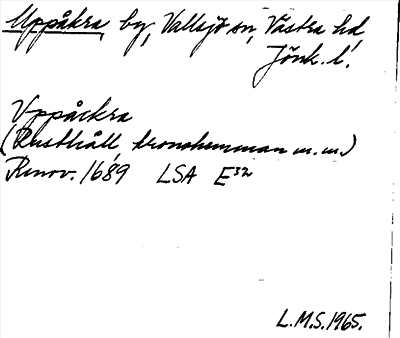 Uppåkra by, Vallsjö sn, Västra hd
Jönk. l.
Vppåckra
(Rusthåll, kronohemman m.m.)
Renov. 1689 LSA E32
L.M.S. 1965.